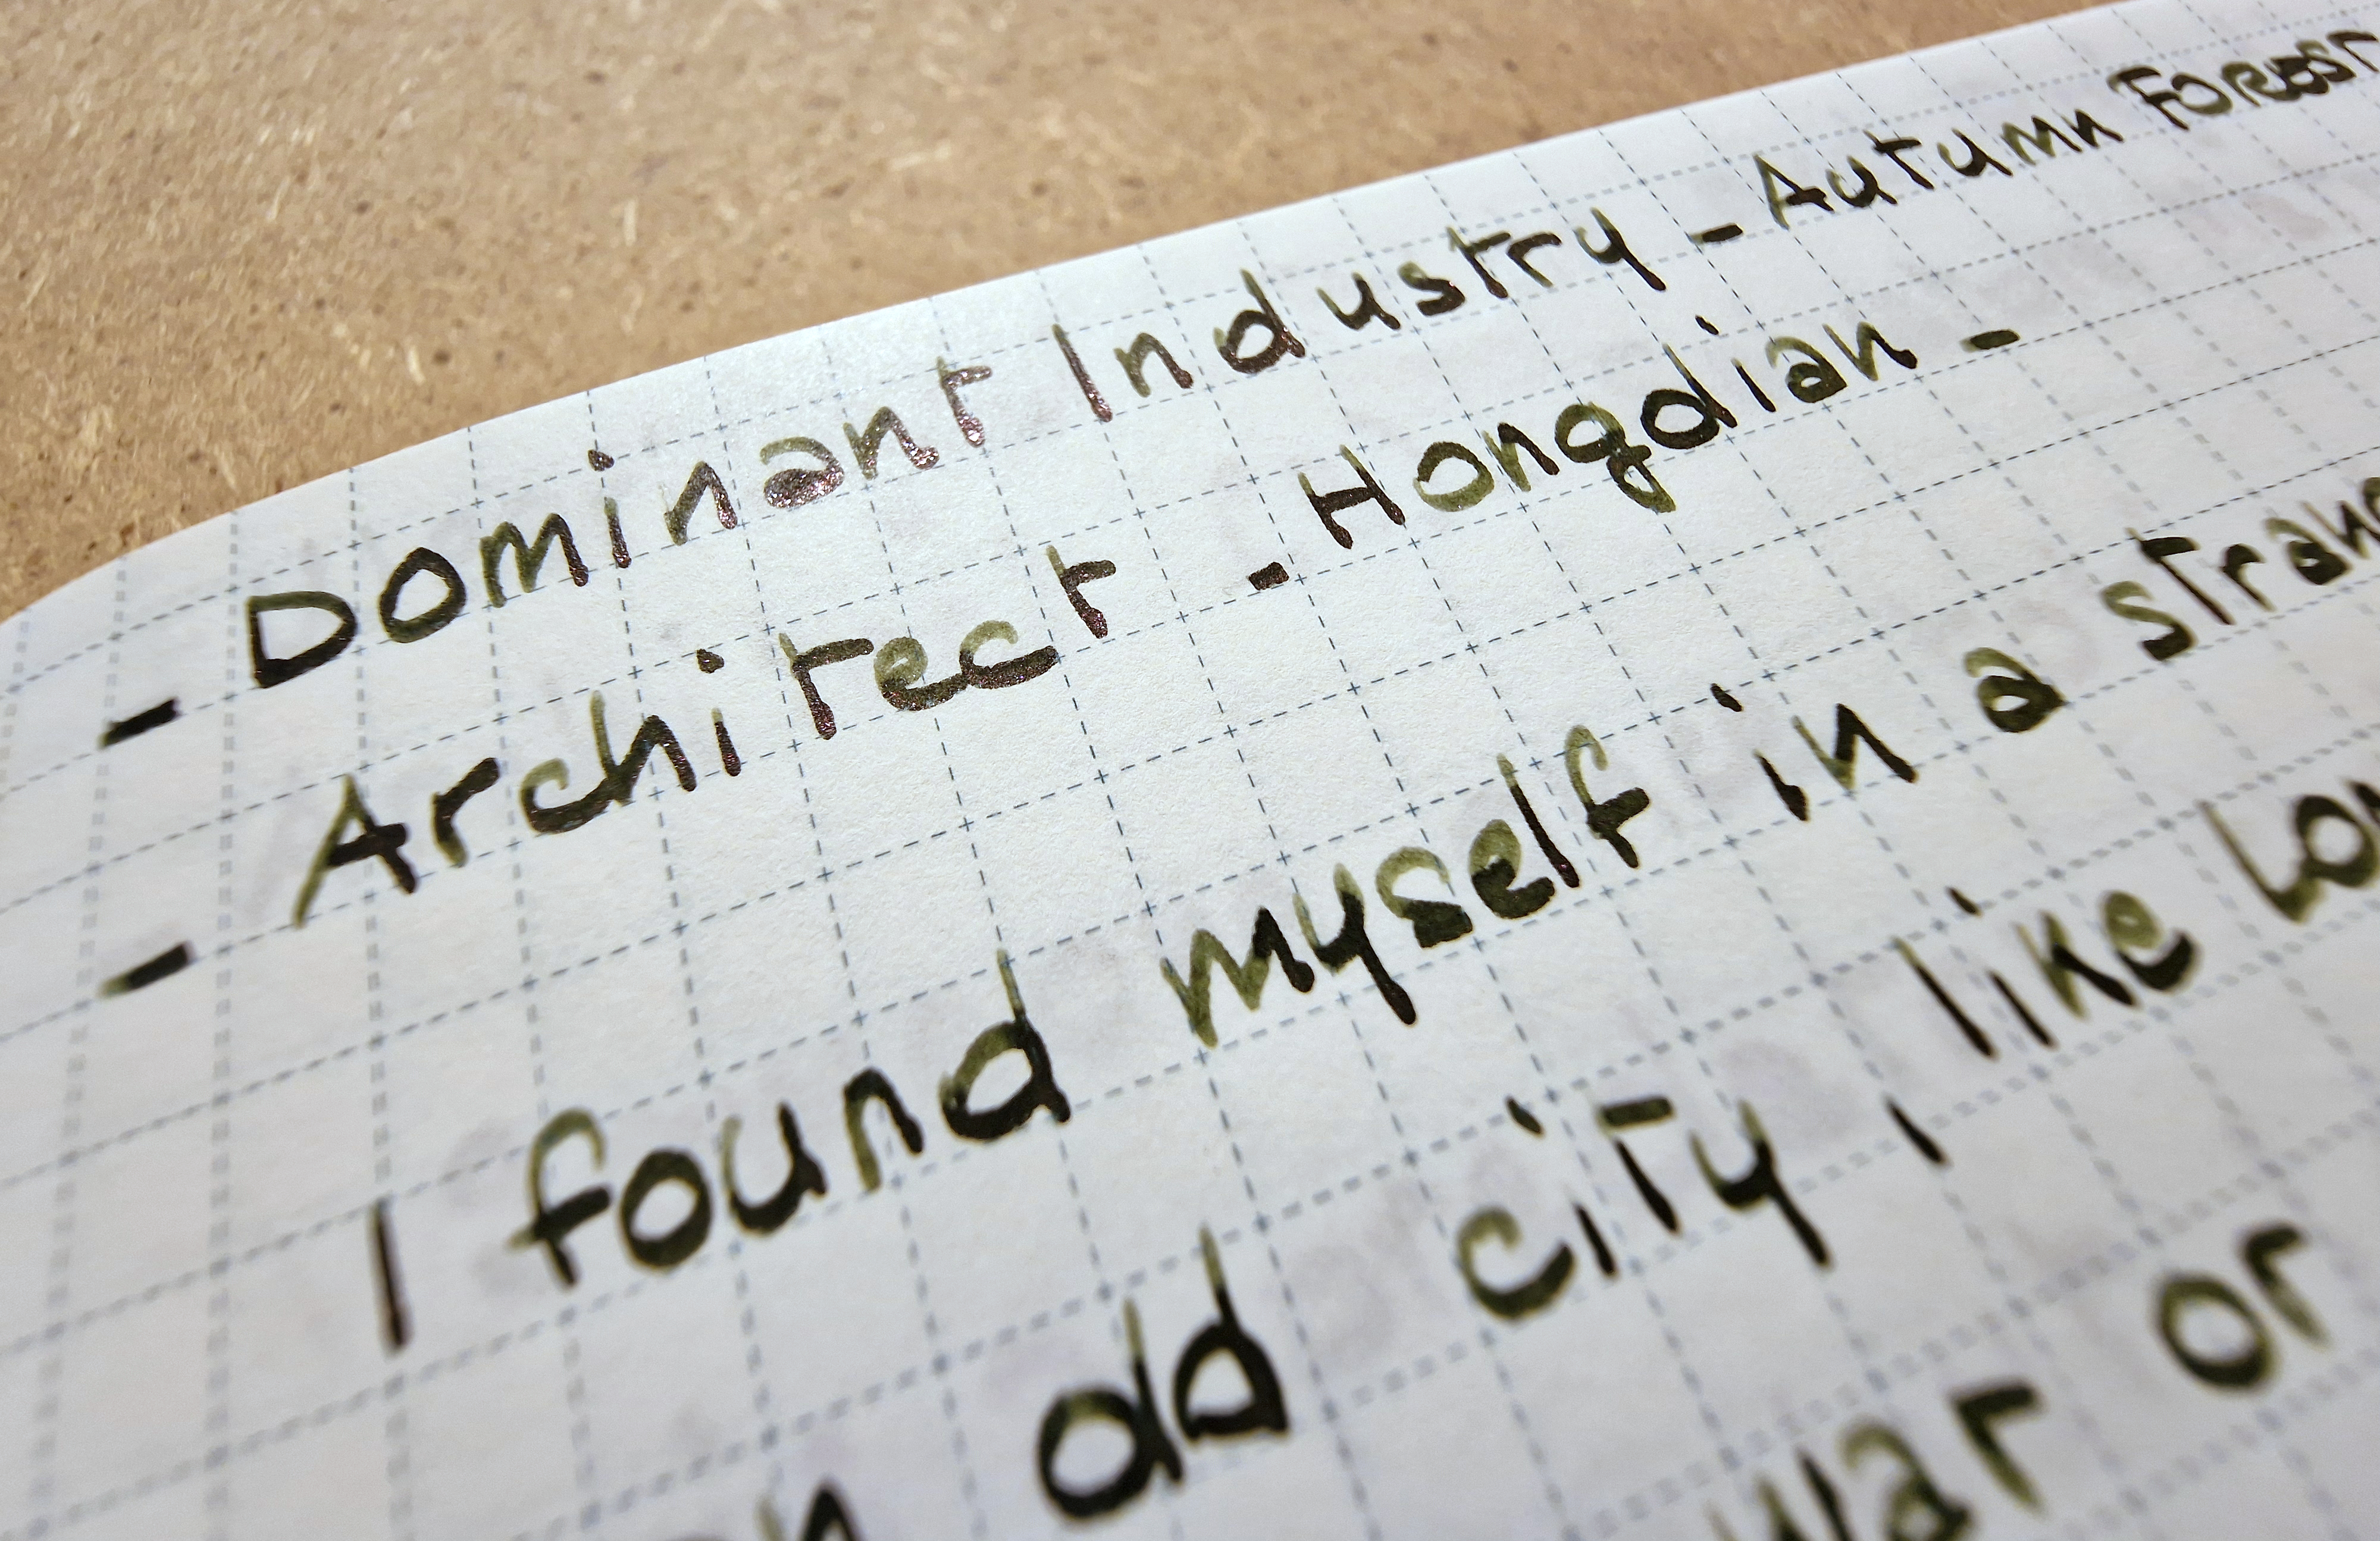 - Dominant Industry - Autumn Forest
- Architect - Hongdian -
I found myself in a
old city like
or